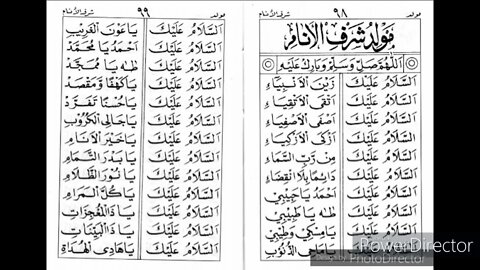 مولد ٩٨ شرف الأنام
مَوْلِدُ شَرَفِ الْأَنَامِ
اَللّٰهُمَّ صَلِّ وَسَلِّمْ وَبَارِكْ عَلَيْهِ
اَلسَّلَامُ عَلَيْكَ زَيْنَ الْأَنْبِيَاءِ
اَلسَّلَامُ عَلَيْكَ اَتْقَى الْأَتْقِيَاءِ
اَلسَّلَامُ عَلَيْكَ اَصْفَى الْأَصْفِيَاءِ
اَلسَّلَامُ عَلَيْكَ اَزْكَى الْأَزْكِيَاءِ
اَلسَّلَامُ عَلَيْكَ مِنْ رَبِّ السَّمَاءِ
اَلسَّلَامُ عَلَيْكَ دَائِمًا بِلَا انْقِضَاءِ
اَلسَّلَامُ عَلَيْكَ اَحْمَدُ يَا حَبِيْبِيْ
اَلسَّلَامُ عَلَيْكَ طٰهٰ يَا طَبِيْبِيْ
اَلسَّلَامُ عَلَيْكَ يَا مِسْكِيْ وَطِيْبِيْ
اَلسَّلَامُ عَلَيْكَ يَا مَاحِي الذُّنُوْبِ
مولد ٩٩ شرف الأنام
اَلسَّلَامُ عَلَيْكَ يَا عَوْنَ الْغَرِيْبِ
اَلسَّلَامُ عَلَيْكَ اَحْمَدُ يَا مُحَمَّدُ
اَلسَّلَامُ عَلَيْكَ طٰهٰ يَا مُمَجَّدُ
اَلسَّلَامُ عَلَيْكَ يَا كَهْفًا وَمَقْصَدُ
اَلسَّلَامُ عَلَيْكَ يَا حُسْنًا تَفَرَّدُ
اَلسَّلَامُ عَلَيْكَ يَا جَالِي الْكُرُوْبِ
اَلسَّلَامُ عَلَيْكَ يَا خَيْرَ الْأَنَامِ
اَلسَّلَامُ عَلَيْكَ يَا بَدْرَ التَّمَامِ
اَلسَّلَامُ عَلَيْكَ يَا نُوْرَ الظَّلَامِ
اَلسَّلَامُ عَلَيْكَ يَا كُلَّ الْمَرَامِ
اَلسَّلَامُ عَلَيْكَ يَا ذَا الْمُعْجِزَاتِ
اَلسَّلَامُ عَلَيْكَ يَا ذَا الْبَيِّنَاتِ
اَلسَّلَامُ عَلَيْكَ يَا هَادِي الْهُدَاةِ
PowerDirector
Design by PhotoDirector